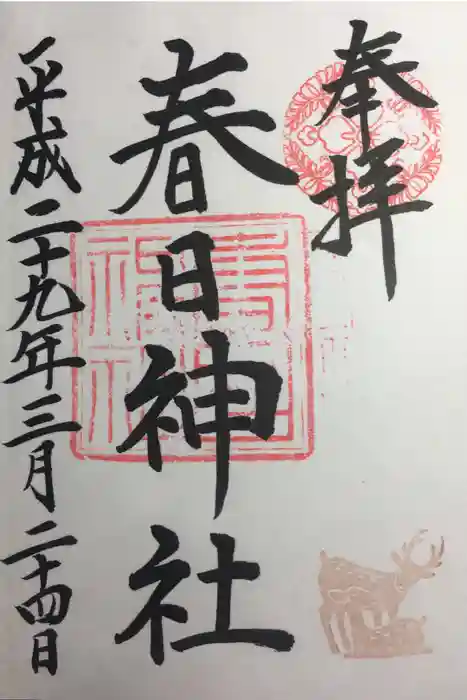 奉拝
春日神社
平成二十九年三月二十四日